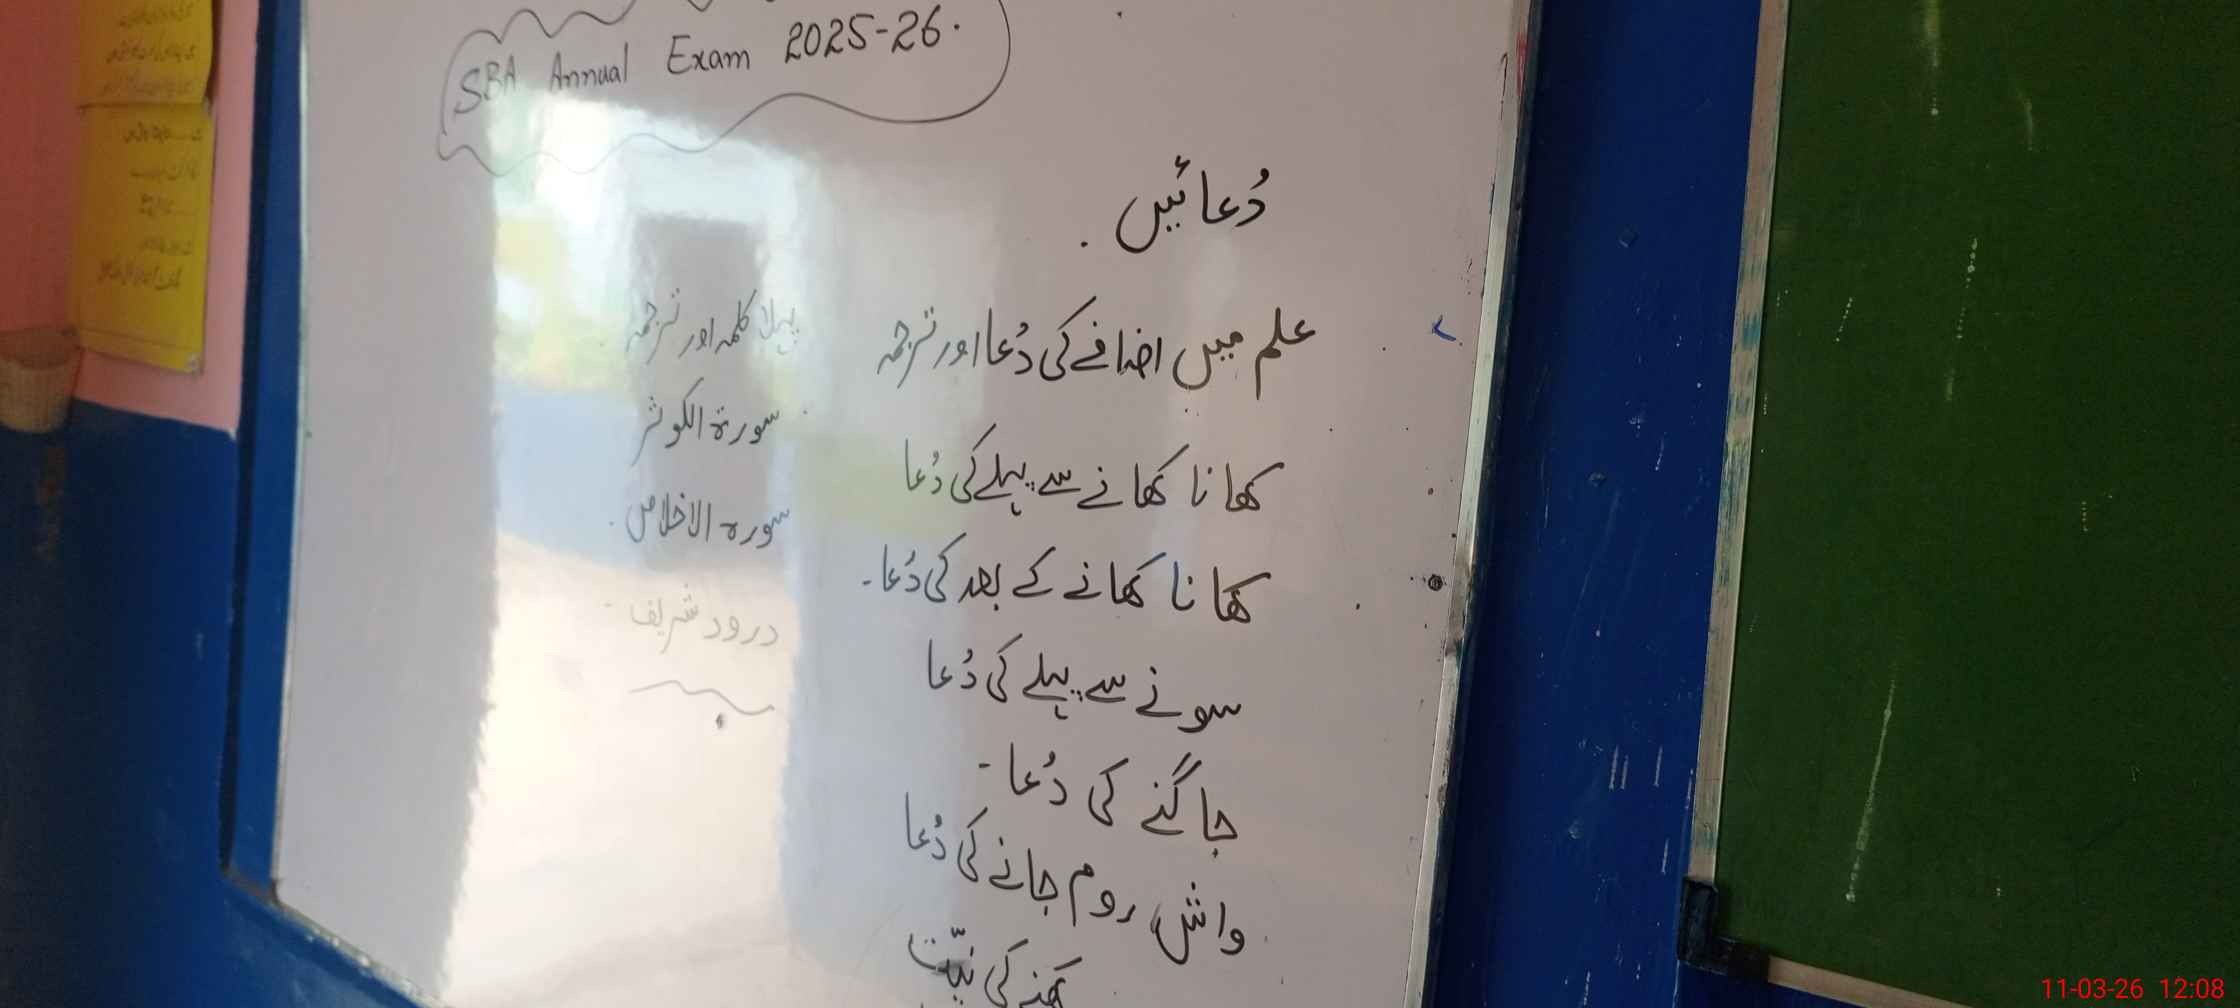 SBA Annual Exam 2025-26.
دُعائیں
علم میں اضافے کی دُعا اور ترجمہ
کھانا کھانے سے پہلے کی دُعا
کھانا کھانے کے بعد کی دُعا۔
سونے سے پہلے کی دُعا
جاگنے کی دُعا۔
واش روم جانے کی دُعا
کی نیّت
پہلا کلمہ اور ترجمہ
سورۃ الکوثر
سورہ الاخلاص
درود شریف۔
11-03-26 12:08